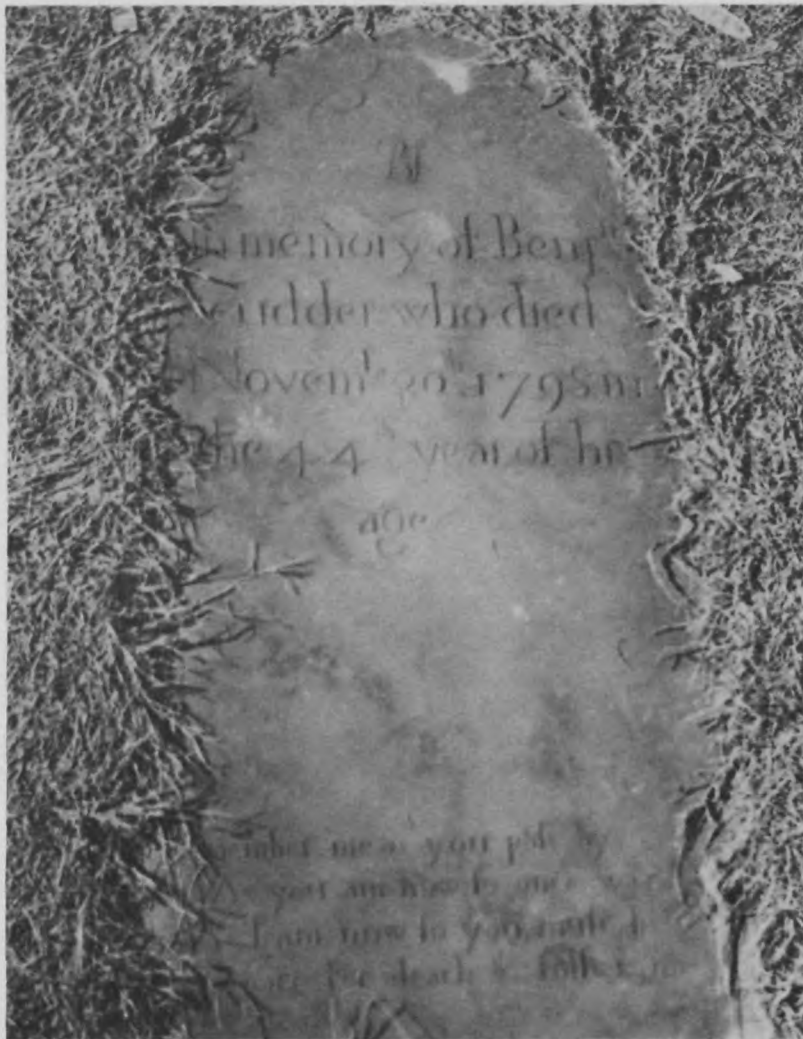 In memory of Benjn
Scudder who died
Novemr 30th 1798 in
the 44th year of his
age
Remember me as you pass by
As you are now so once was
I am now so you must be
for death & follow me